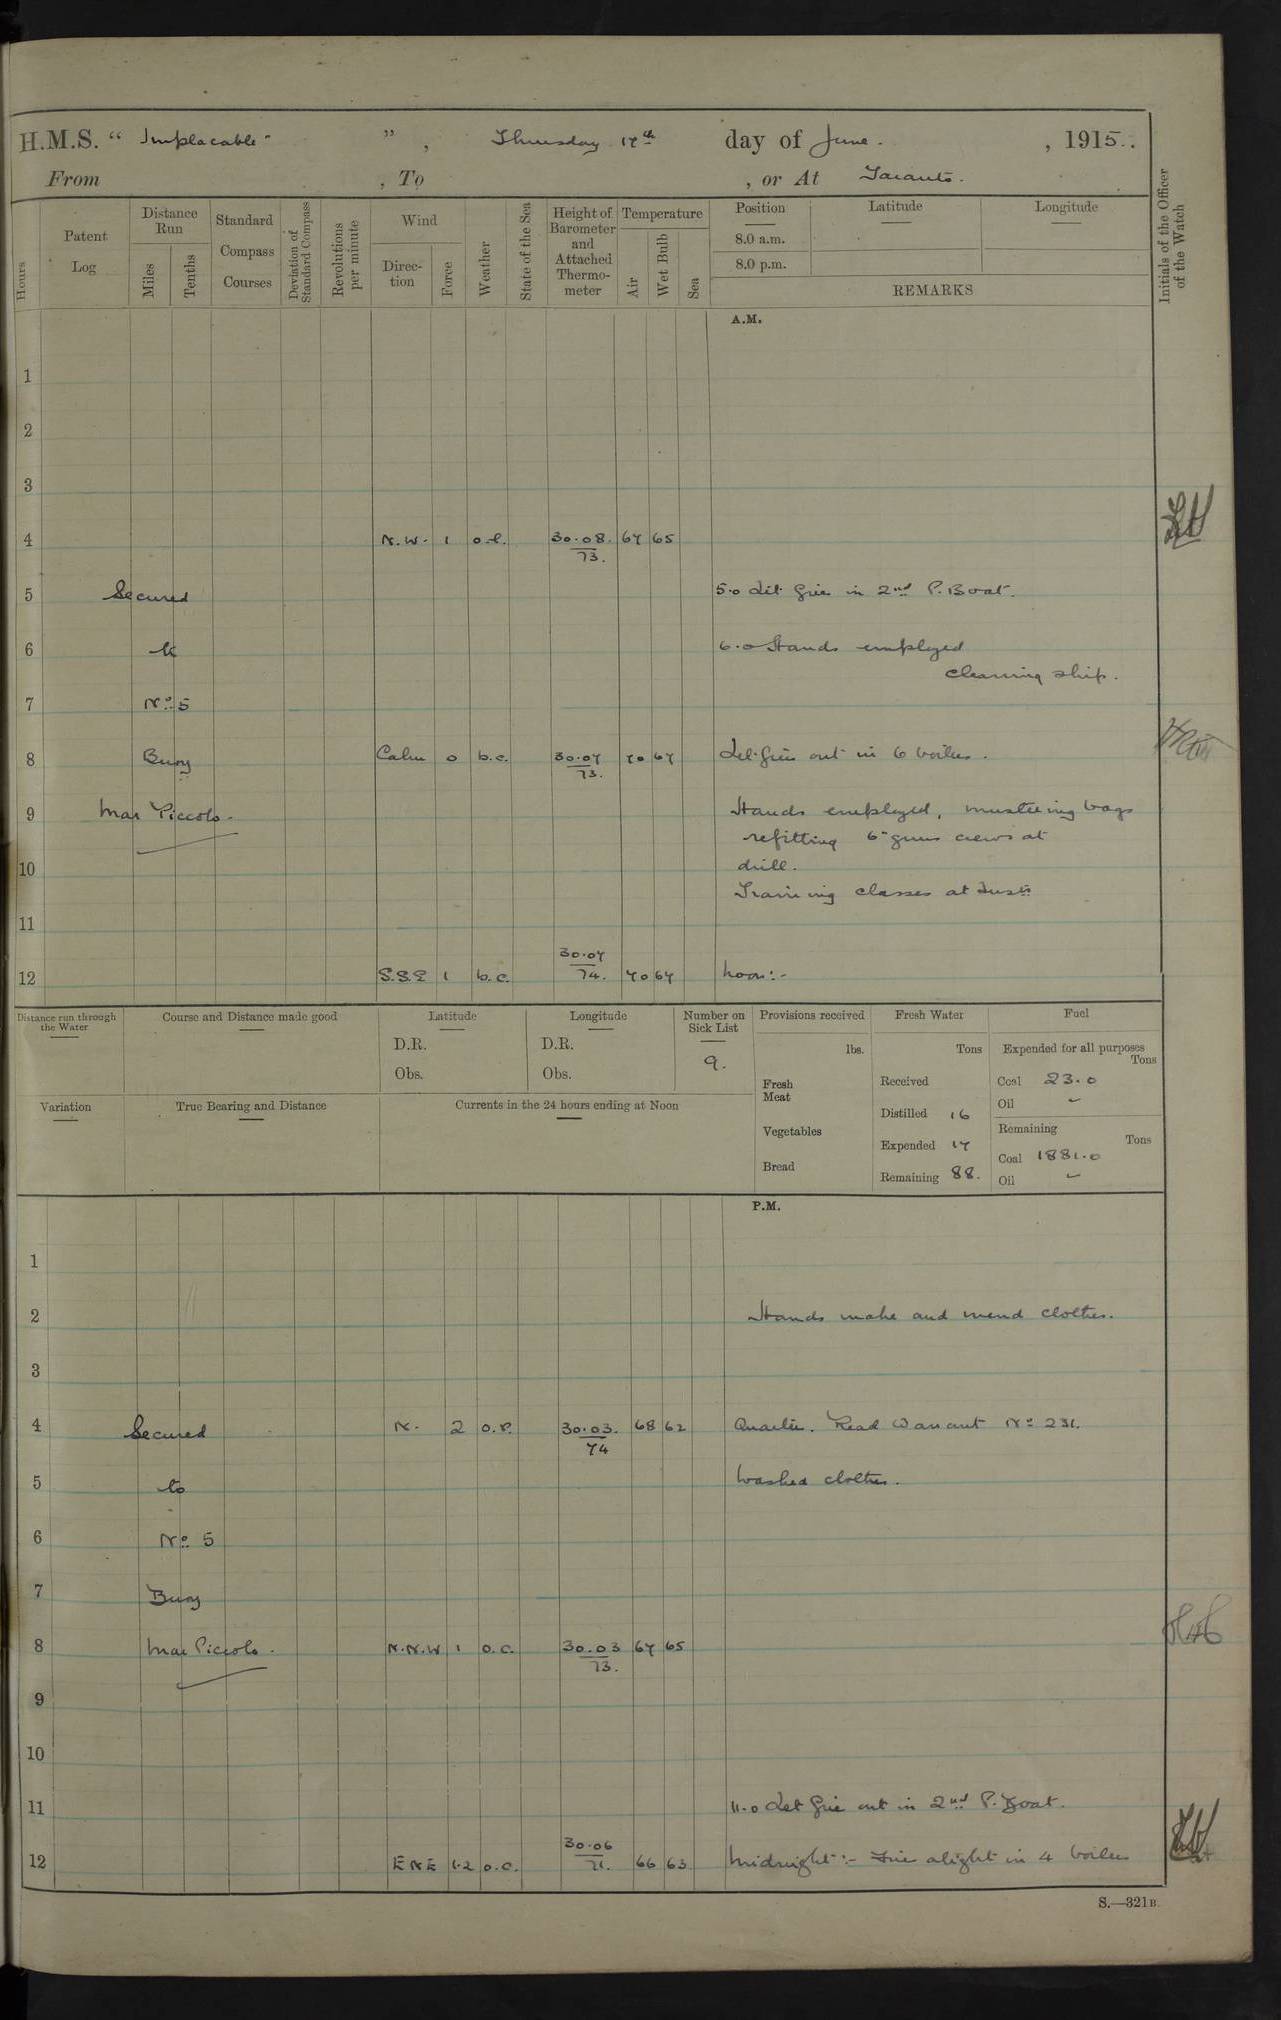 H.M.S. “ Implacable ” , Thursday 17th day of June. , 1915.
From , To , or At Taranto.
Hours
Patent Log
Distance Run
Miles
Tenths
Standard Compass Courses
Deviation of Standard Compass
Revolutions per minute
Wind
Direction
Force
Weather
State of the Sea
Height of Barometer and Attached Thermometer
Temperature
Air
Wet Bulb
Sea
Position
8.0 a.m.
8.0 p.m.
Latitude
Longitude
REMARKS
Initials of the Officer of the Watch
A.M.
1
2
3
4 N.W. 1 30.08. 67 65
73.
5 Secured 5.0 Lit fire in 2nd P. Boat.
6 to 6.0 Hands employed
cleaning ship.
7 No 5
8 Buoy Calm 0 b.c. 30.07 70 67 Let fires out in 6 boilers.
73.
9 Mar Piccolo. Hands employed, mustering bags
refitting 6" guns crews at
10 drill.
Training classes at Instn
11
30.07
12 S.S.E 1 b.c. 74. 70 67 Noon:-
Distance run through the Water
Course and Distance made good
Latitude
D.R.
Obs.
Longitude
D.R.
Obs.
Number on Sick List
9.
Provisions received
lbs.
Fresh Meat
Vegetables
Bread
Fresh Water
Tons
Received
Distilled 16
Expended 17
Remaining 88.
Fuel
Expended for all purposes
Tons
Coal 23.0
Oil –
Remaining
Tons
Coal 1881.0
Oil –
Variation
True Bearing and Distance
Currents in the 24 hours ending at Noon
P.M.
1
2 Hands make and mend clothes.
3
4 Secured N. 2 o.p. 30.03. 68 62 Quarters. Read Warrant No 231.
74
5 to Washed clothes.
6 No 5
7 Buoy
8 Mar Piccolo. N.N.W 1 o.c. 30.03 67 65
73.
9
10
11 11.0 Let fire out in 2nd P. Boat.
30.06
12 ENE 1.2 o.c. 71. 66 63 Midnight:- Fires alight in 4 boilers
S.—321B.